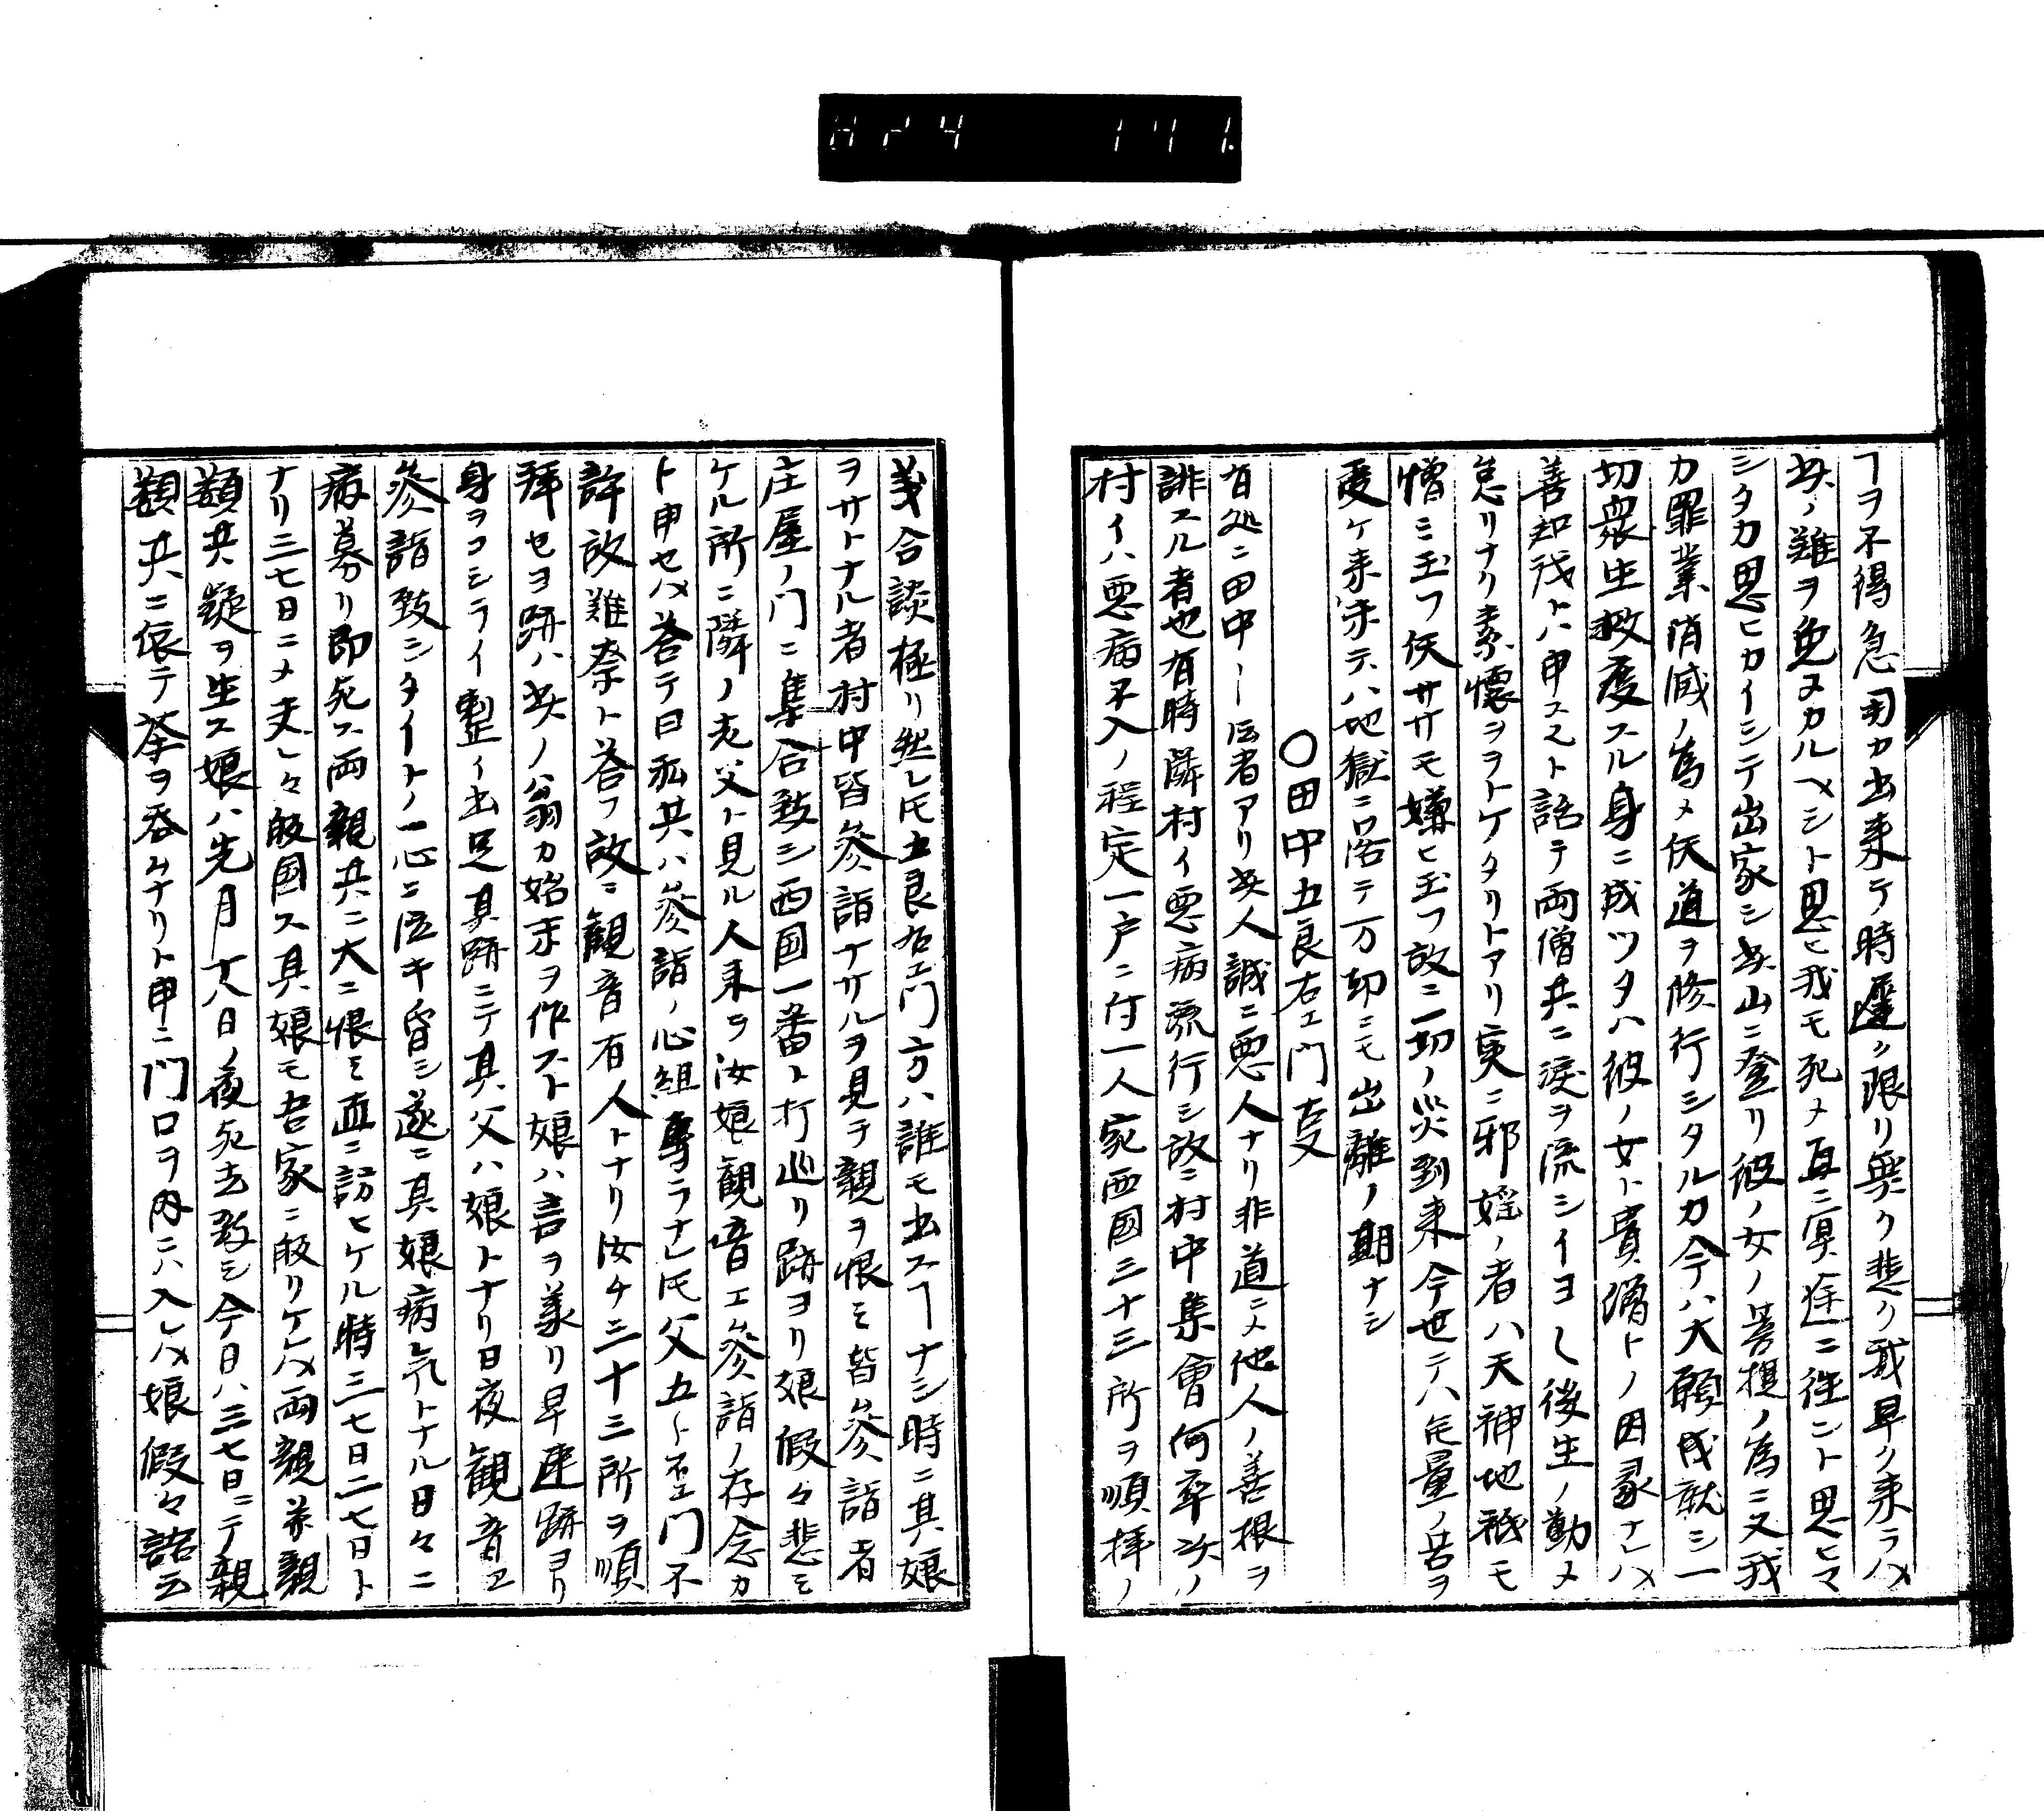 ヿヲ不得急用カ出来テ時遅ク限リ無ク悲ク我早ク来ラハ
此ノ難ヲ免ヌカルヘシト思ヒ我モ死メ直ニ冥途ニ往ント思ヒマ
シタカ思ヒカイシテ出家シ此山ニ登リ彼ノ女ノ菩提ノ為ニ又我
カ罪業消滅ノ為メ仏道ヲ修行シタルカ今ハ大願成就シ一
切衆生救度スル身ニ成ツタハ彼ノ女ト貴僧トノ因縁ナレハ
善知識トハ申スヽト語テ両僧共ニ涙ヲ流シイヨ〱後生ノ勤メ
怠リナク素懐ヲヲトケタリトアリ実ニ邪婬ノ者ハ天神地祇モ
憎ミ玉フ仏ササモ嫌ヒ玉フ故ニ一切ノ災到来今世テハ無量ノ苦ヲ
受ケ来世テハ地獄ニ落テ万劫ニモ出離ノ期ナシ
〇田中五良右エ門変
有処ニ田中ーー云者アリ此人誠ニ悪人ナリ非道ニメ他人ノ善根ヲ
誹スル者也有時隣村イ悪病流行シ故ニ村中集會何卒次ノ
村イハ悪病不入ノ程定一戸ニ付一人宛西国三十三所ヲ順拝ノ
義合談極リ然レ𪜈五良右エ門方ハ誰モ出スヿナシ時ニ其娘
ヲサトナル者村中皆參詣ナサルヲ見テ親ヲ恨ミ皆參詣者
庄屋ノ門ニ集合致シ西国一番ト打巡リ跡ヨリ娘假々悲ミ
ケル所ニ隣ノ老父ト見ル人来ラ汝娘観音エ參詣ノ存念カ
ト申セハ答テ曰私共ハ參詣ノ心組専ラナレ𪜈父五良右エ門不
許故難奈ト答フ故ニ観音有人トナリ汝チ三十三所ヲ順
拝セヨ跡ハ此ノ翁カ始末ヲ作スト娘ハ言ヲ承リ早速跡ヨリ
身ヲコシライ整イ出足其跡ニテ其父ハ娘トナリ日夜観音エ
參詣致シタイトノ一心ニ泣キ皆シ遂ニ其娘病気トナル日々ニ
病募リ即死ス両親共ニ大ニ恨ミ直ニ訪ヒケル時三七日二七日ト
ナリ三七日ニメ夫レ々皈国ス其娘モ吾家ニ皈リケレハ両親并親
類共疑ヲ生ス娘ハ先月十八日ノ夜死去致シ今日ハ三七日ニテ親
類共ニ依テ茶ヲ呑ムナリト申ニ門口ヲ内ニハ入レハ娘假々詰云